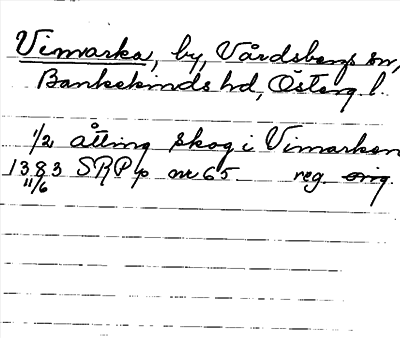 Vimarka, by, Vårdsbergs sn,
Bankekinds hd, Österg. l.
1/2 åtting skog i Vimarken
1383 SRP p nr 65 reg. orig.
11/6